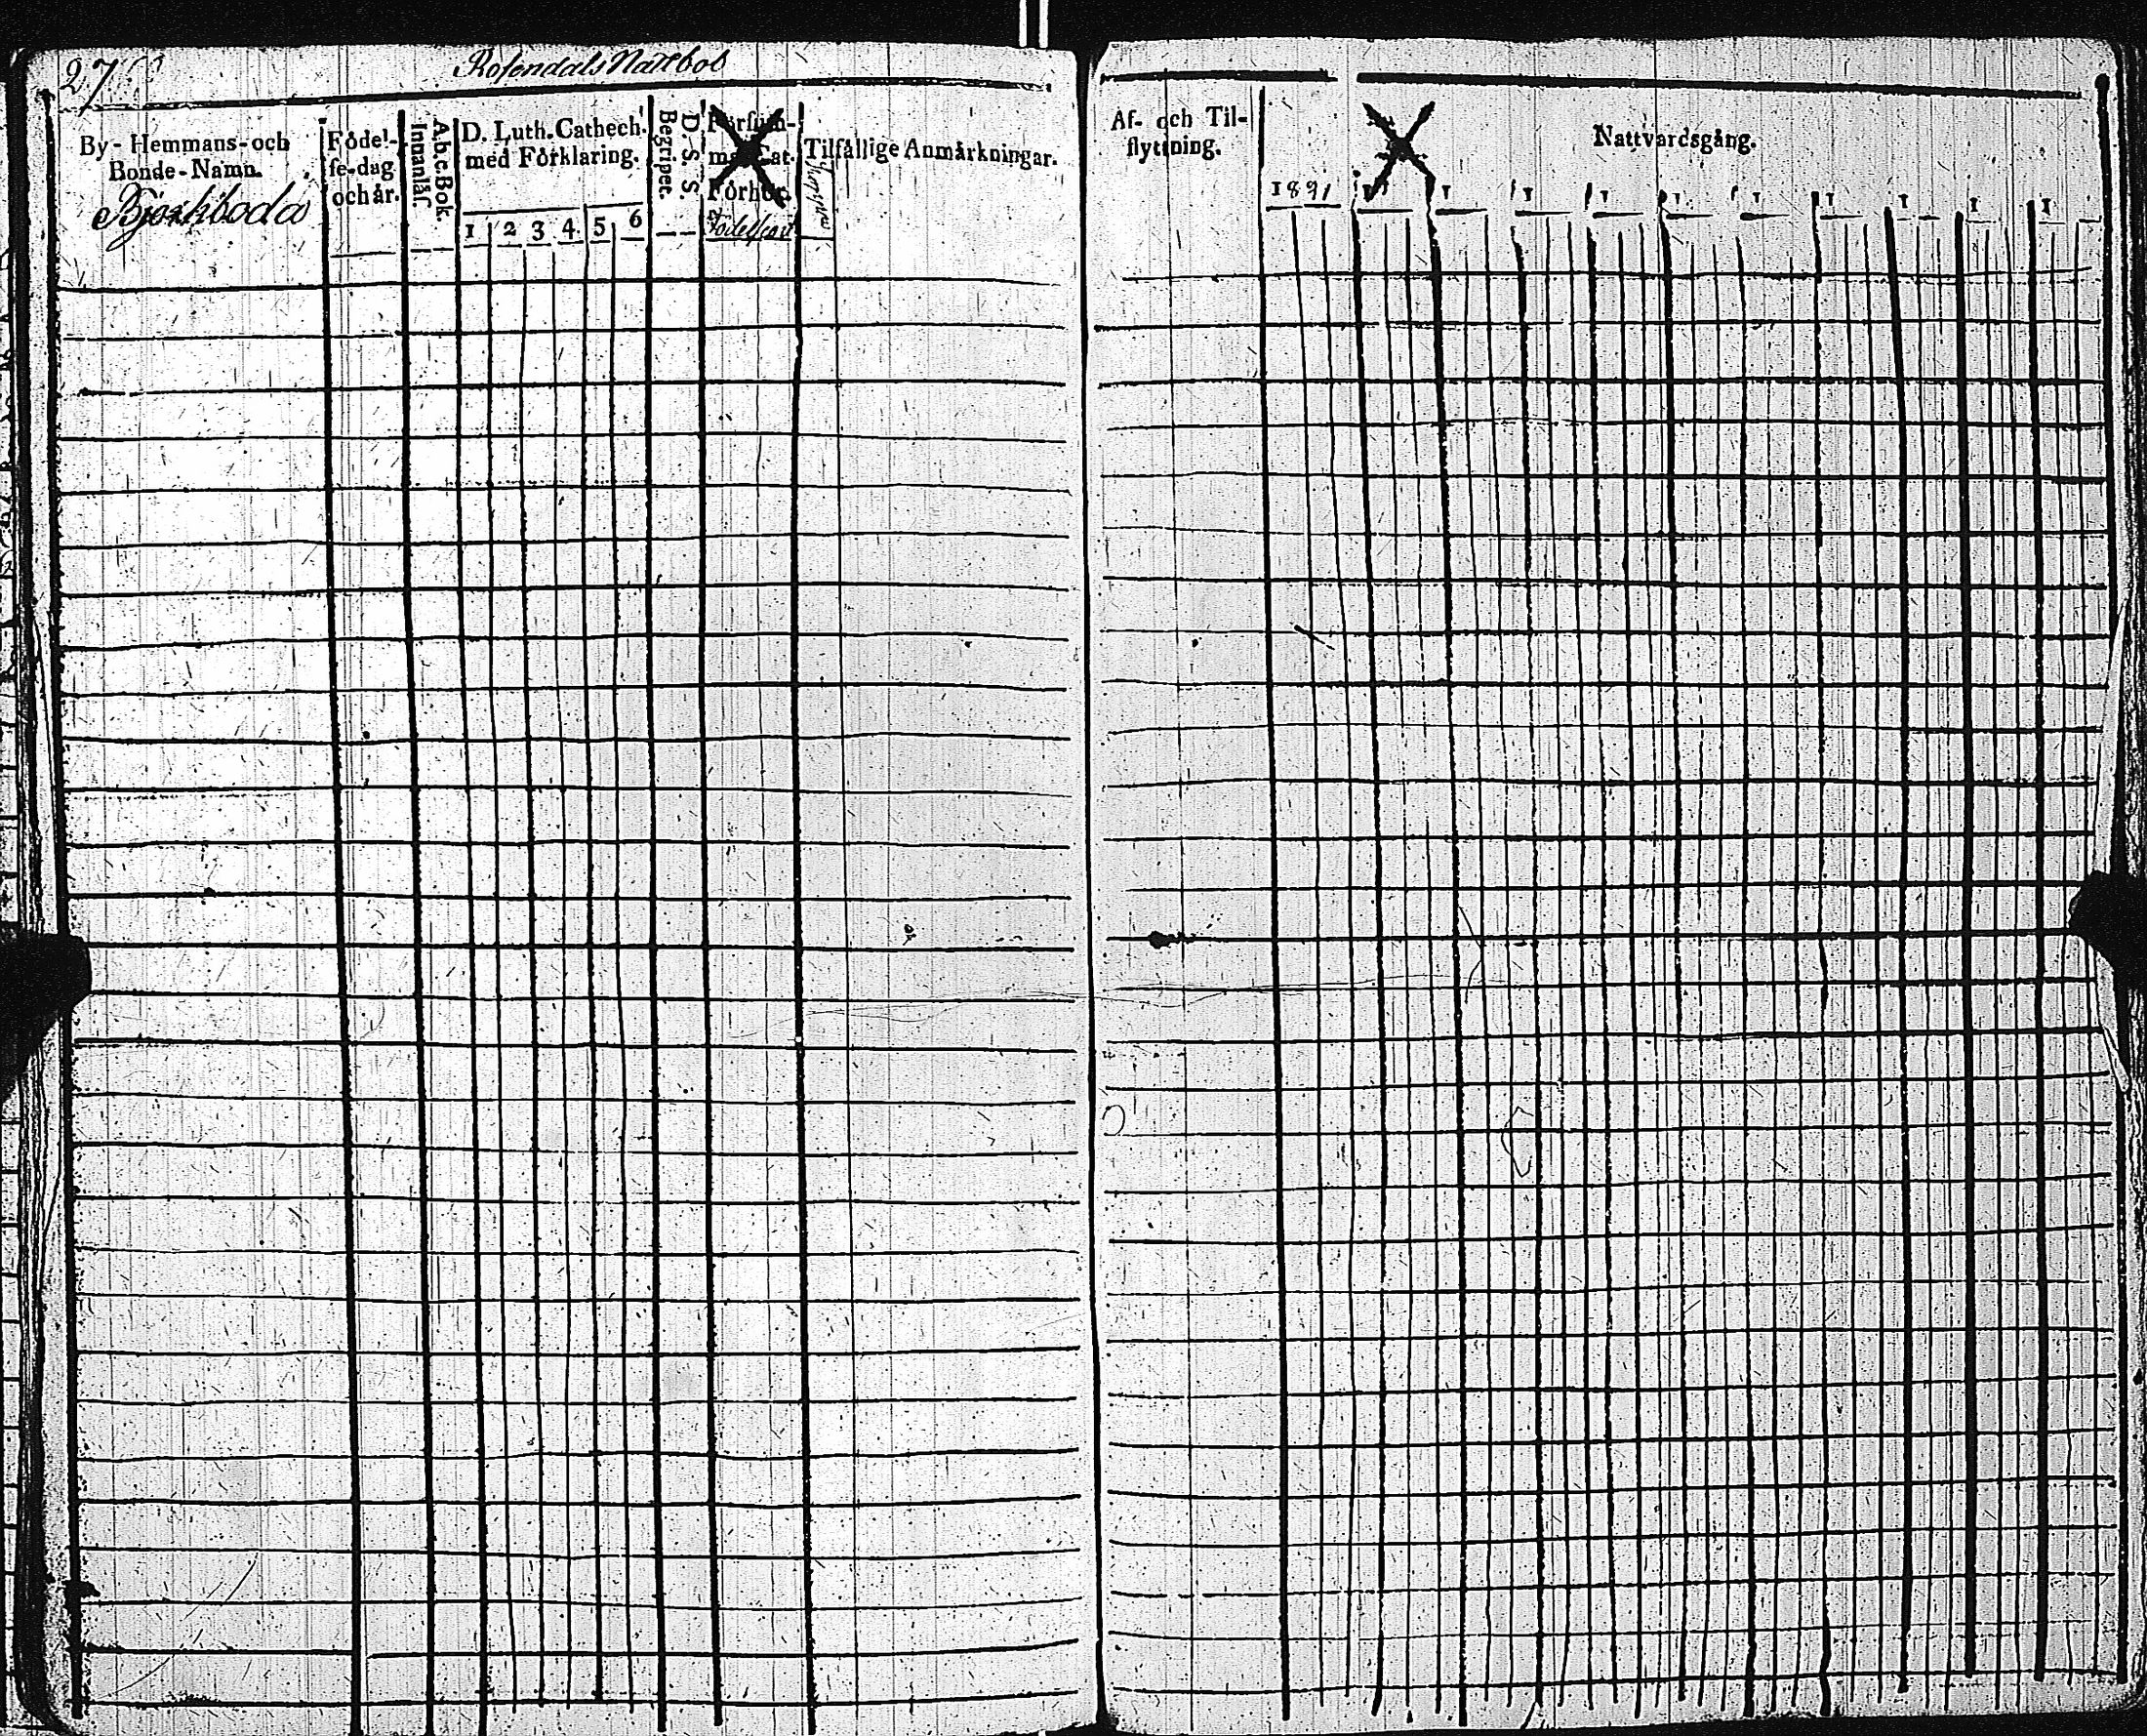 27
Rosendals Nattbol
By- Hemmans- och
Bonde-Namn.
Björkboda
Födel-
se-dag
och år.
A.b.c.Bok.
Innanläs.
D. Luth. Cathech.
med Förklaring.
1 2 3 4. 5 6
D. S. S.
Begripet.
Försum-
mat Cat.
Förhör.
Tilfällige Anmärkningar.
Af- och Til-
flyttning.
Nattvardsgång.
1821 1 1 1 1 1 1 1 1 1 1